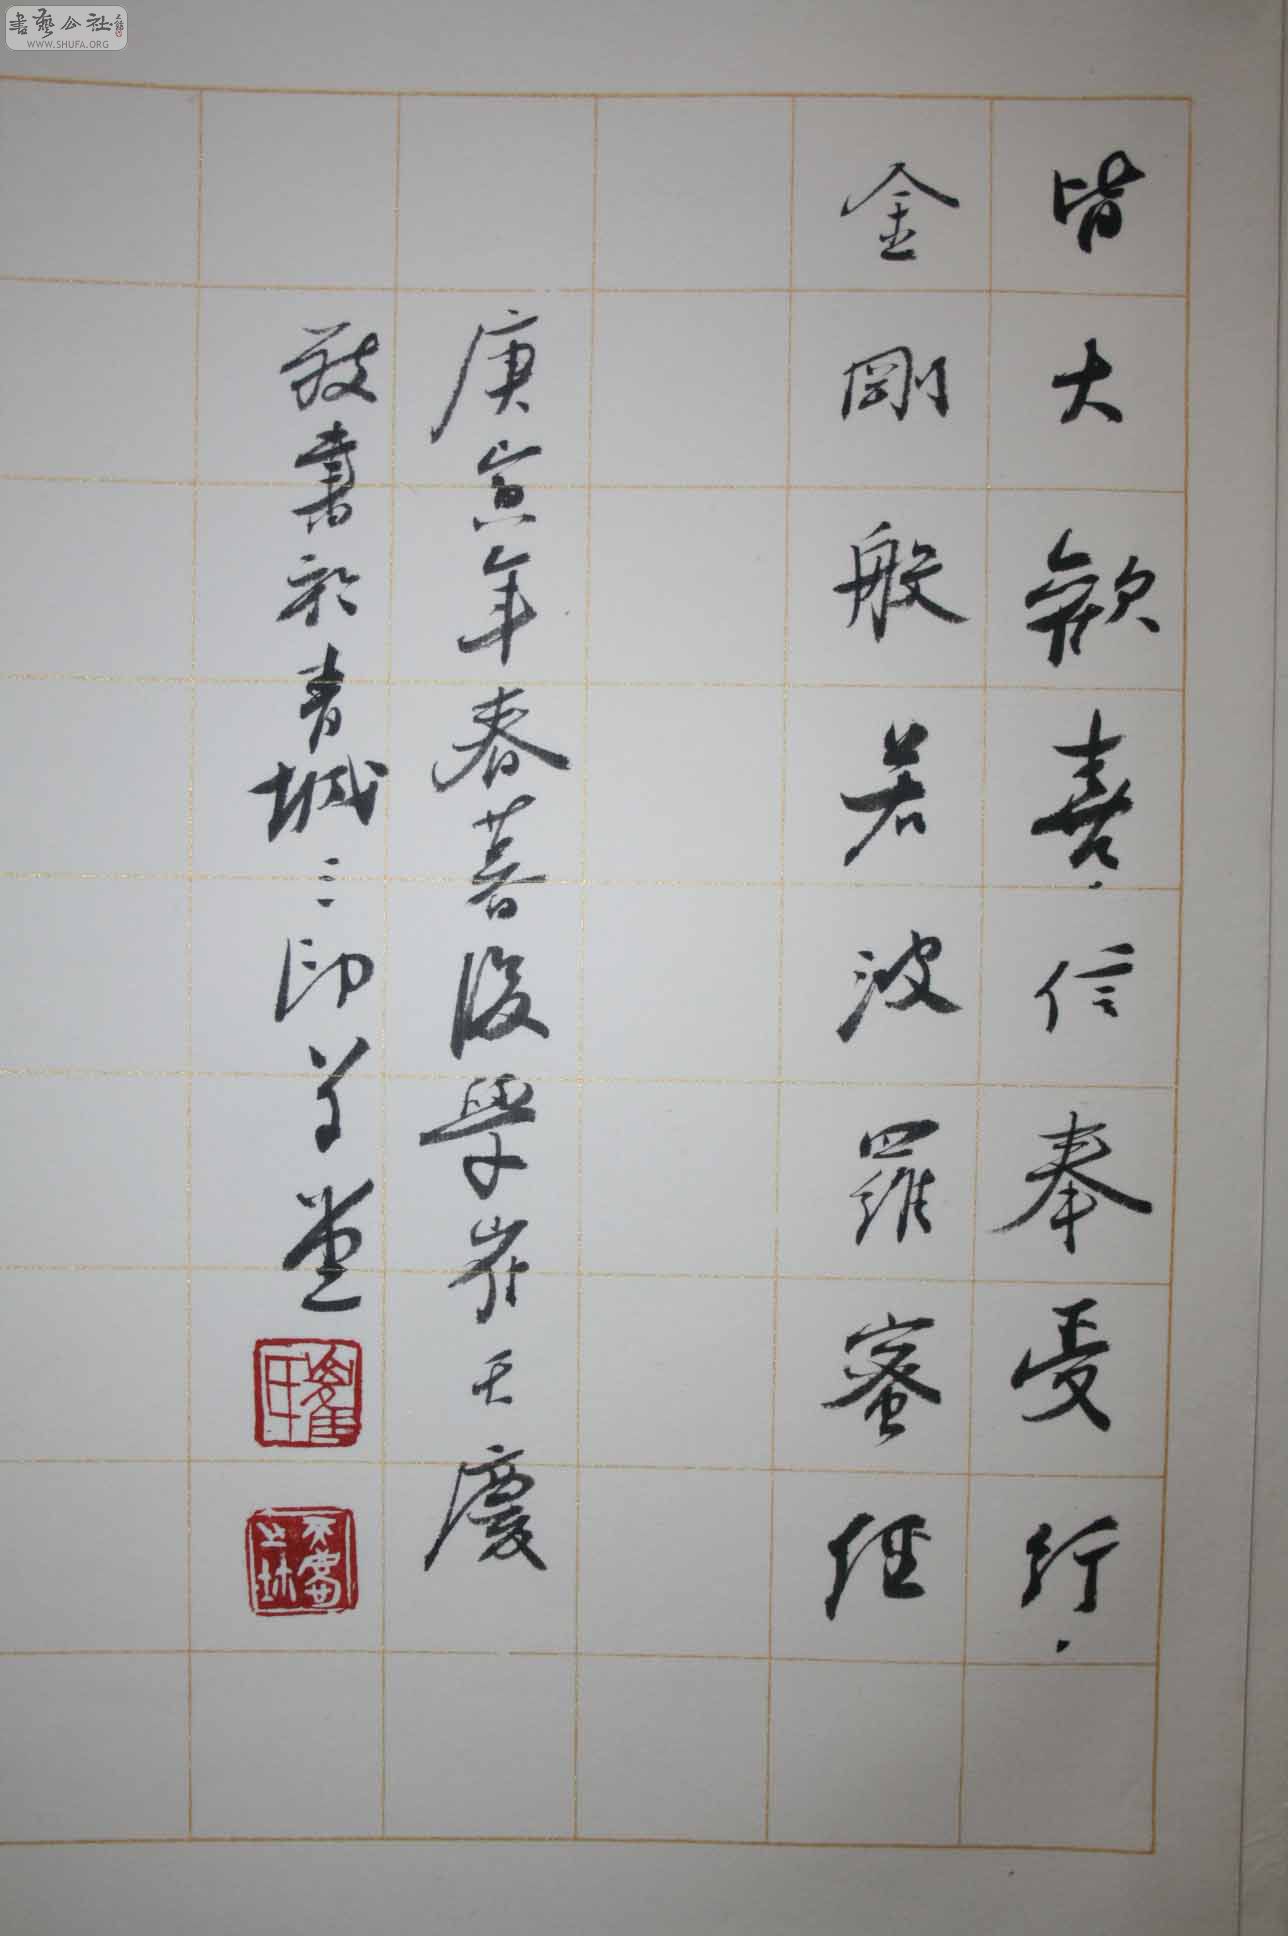 皆大歡喜信奉受行
金剛般若波羅蜜經
庚寅年春菩後學崔天慶
敬書於青城三印草堂
書藝公社
WWW.SHUFA.ORG